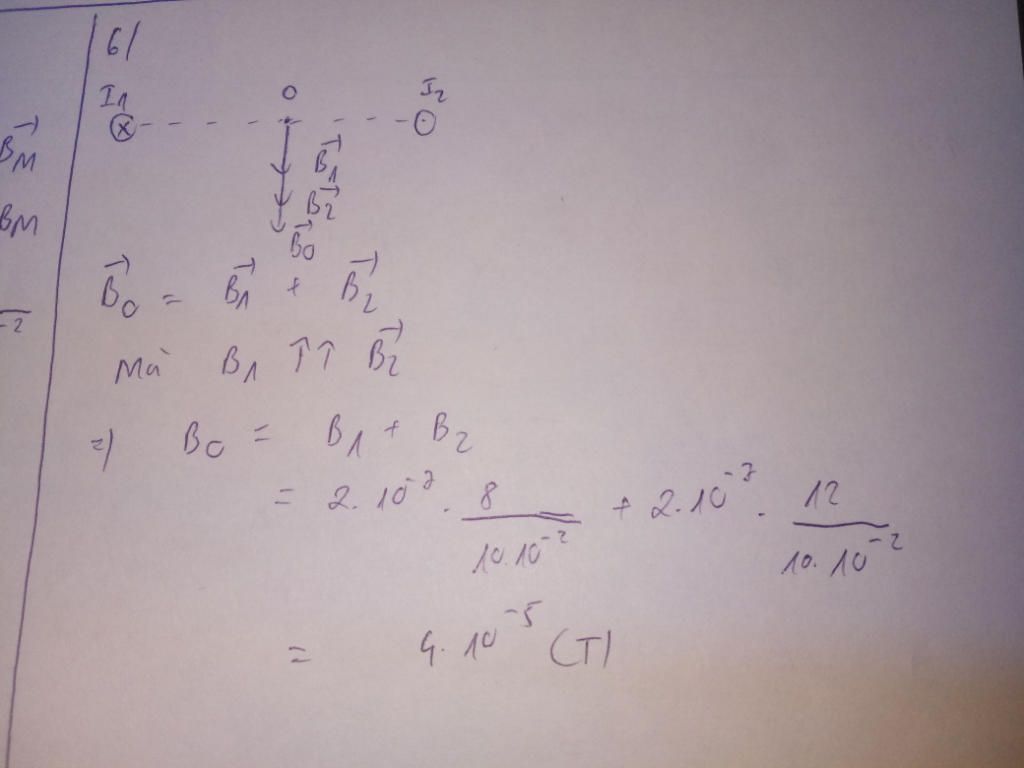 B⃗M
BM
-2
6/
I1 O I2
B⃗1
B⃗2
B⃗0
B⃗0 = B⃗1 + B⃗2
Mà B1 ↑↑ B⃗2
=) B0 = B1 + B2
= 2.10^-7 . 8/(10.10^-2) + 2.10^-7 . 12/(10.10^-2)
= 4.10^-5 (T)